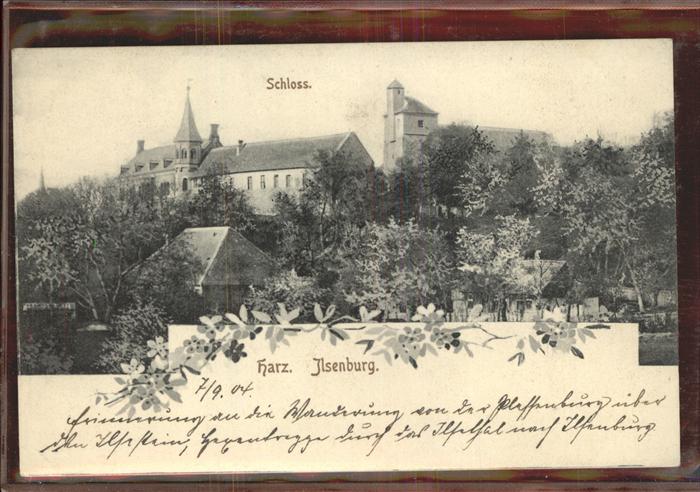 Schloss.
Harz. Ilsenburg.
7/9. 04.
Erinnerung an die Wanderung von der Plessenburg über
den Ilsestein, Hexentreppe durch das Ilsethal nach Ilsenburg